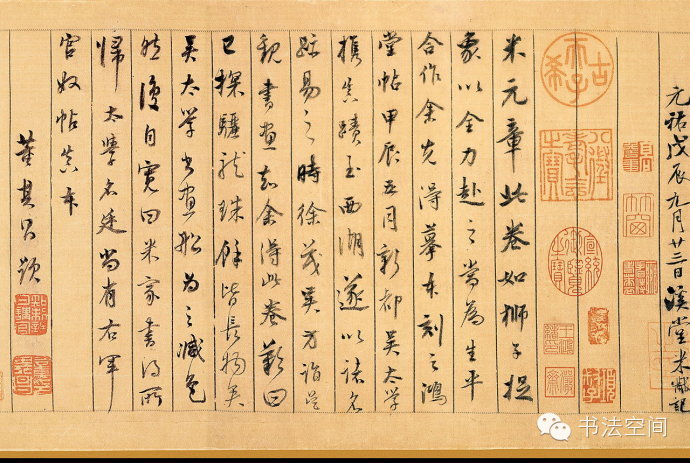 元祐戊辰九月廿三日溪堂米黻記
古希天子
八徵耄念之寶
宣統御覽之寶
米元章此卷如獅子捉
象以全力赴之當為生平
合作余先得摹本刻之鴻
堂帖甲辰五月新都吳太學
攜真蹟至西湖遂以諸名
跡易之時徐茂吳方詣吳
觀書畫知余得此卷歎曰
已探驪龍珠餘皆長物矣
吳太學書畫船為之減色
然後自寬曰米家書得所
歸太學名廷尚有右軍
官奴帖真本
董其昌題
书法空间